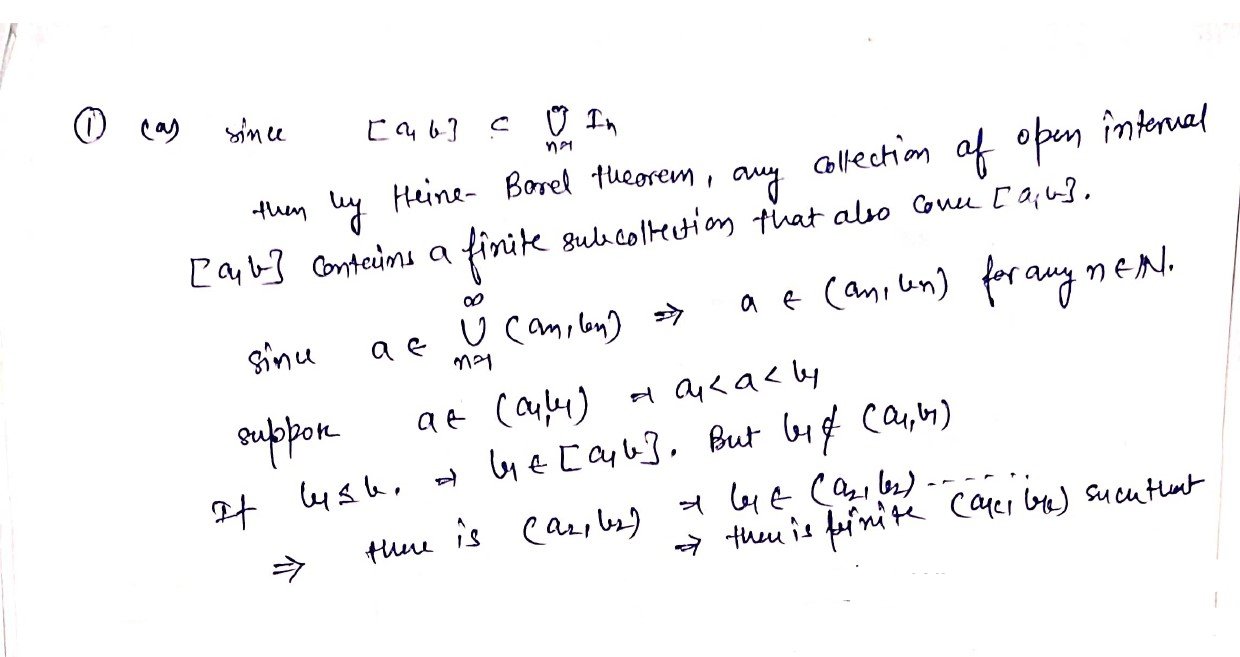 ① (a) since [a, b] ⊂ ∞⋃n=1 In
then by Heine-Borel theorem, any collection of open interval
[a, b] contains a finite subcollection that also cover [a, b].
since a ∈ ∞⋃n=1 (an, bn) ⇒ a ∈ (an, bn) for any n ∈ ℕ.
suppose a ∈ (a1, b1) ⇒ a1 < a < b1
If b1 ≤ b. ⇒ b1 ∈ [a, b]. But b1 ∉ (a1, b1)
⇒ there is (a2, b2) ⇒ b1 ∈ (a2, b2) -------
⇒ there is finite (ak, bk) such that